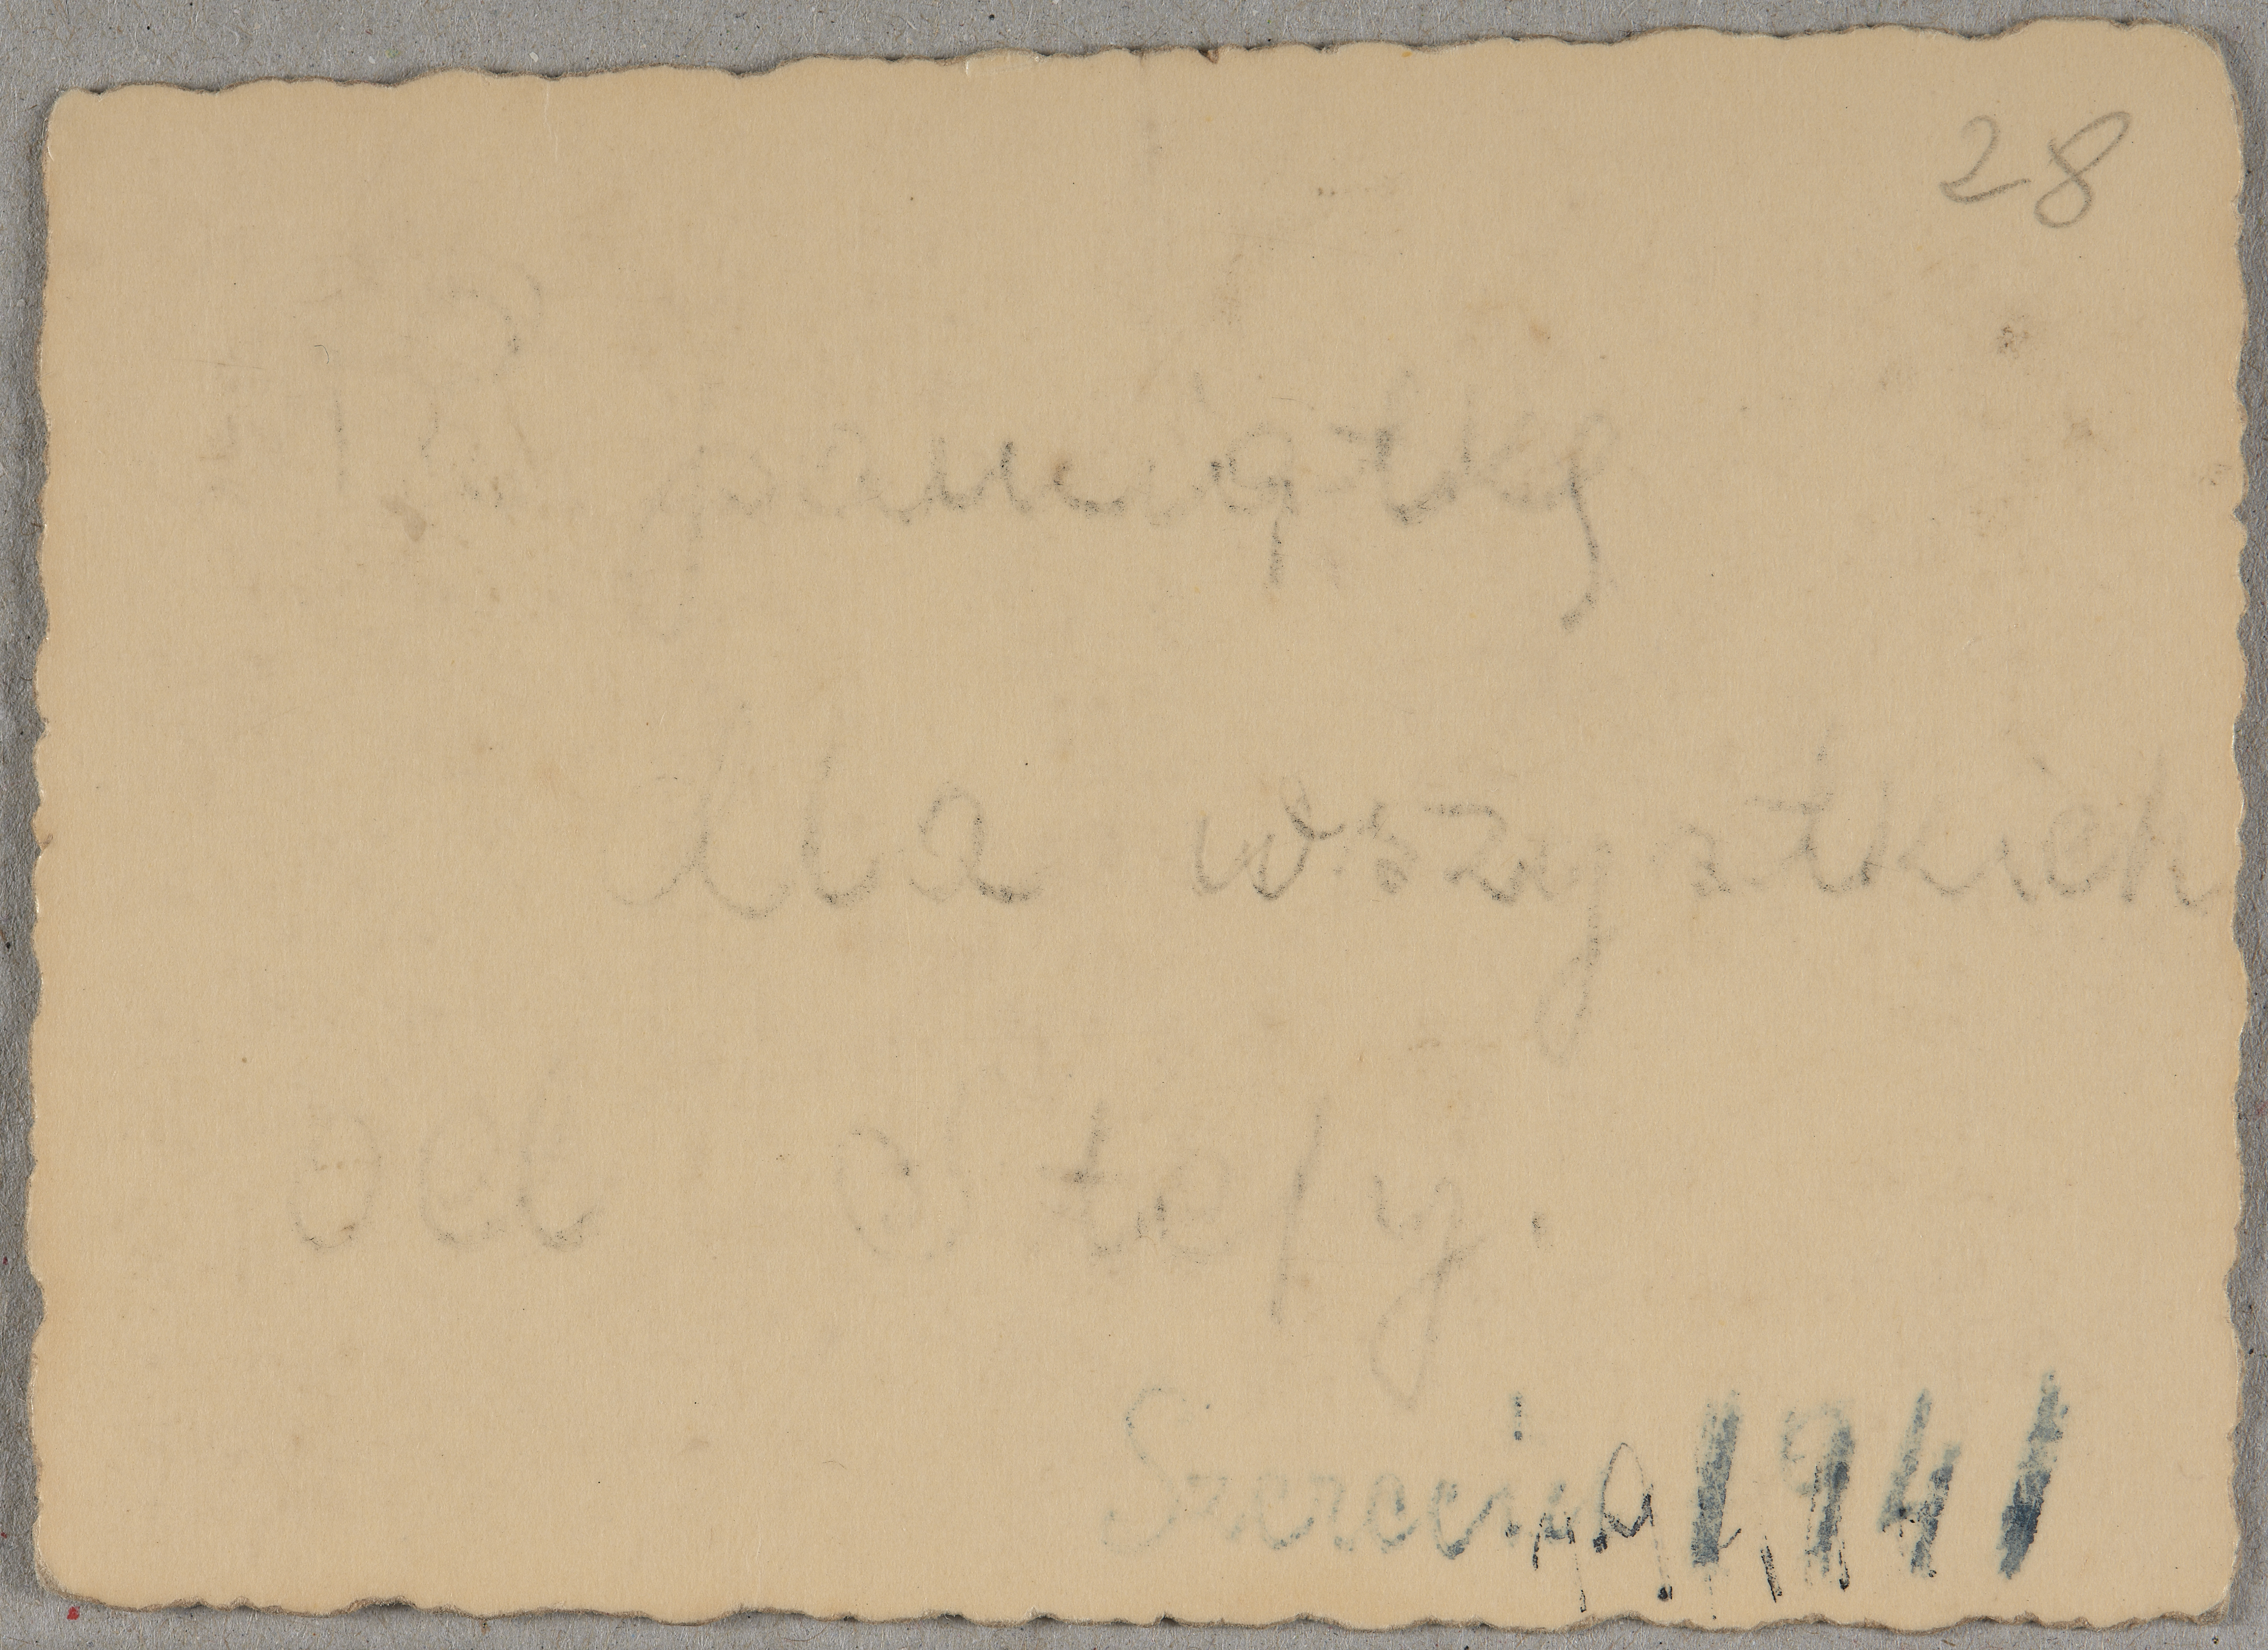 28
Na pamiątkę
dla wszystkich
Od Stefy.
Szczecin 1941